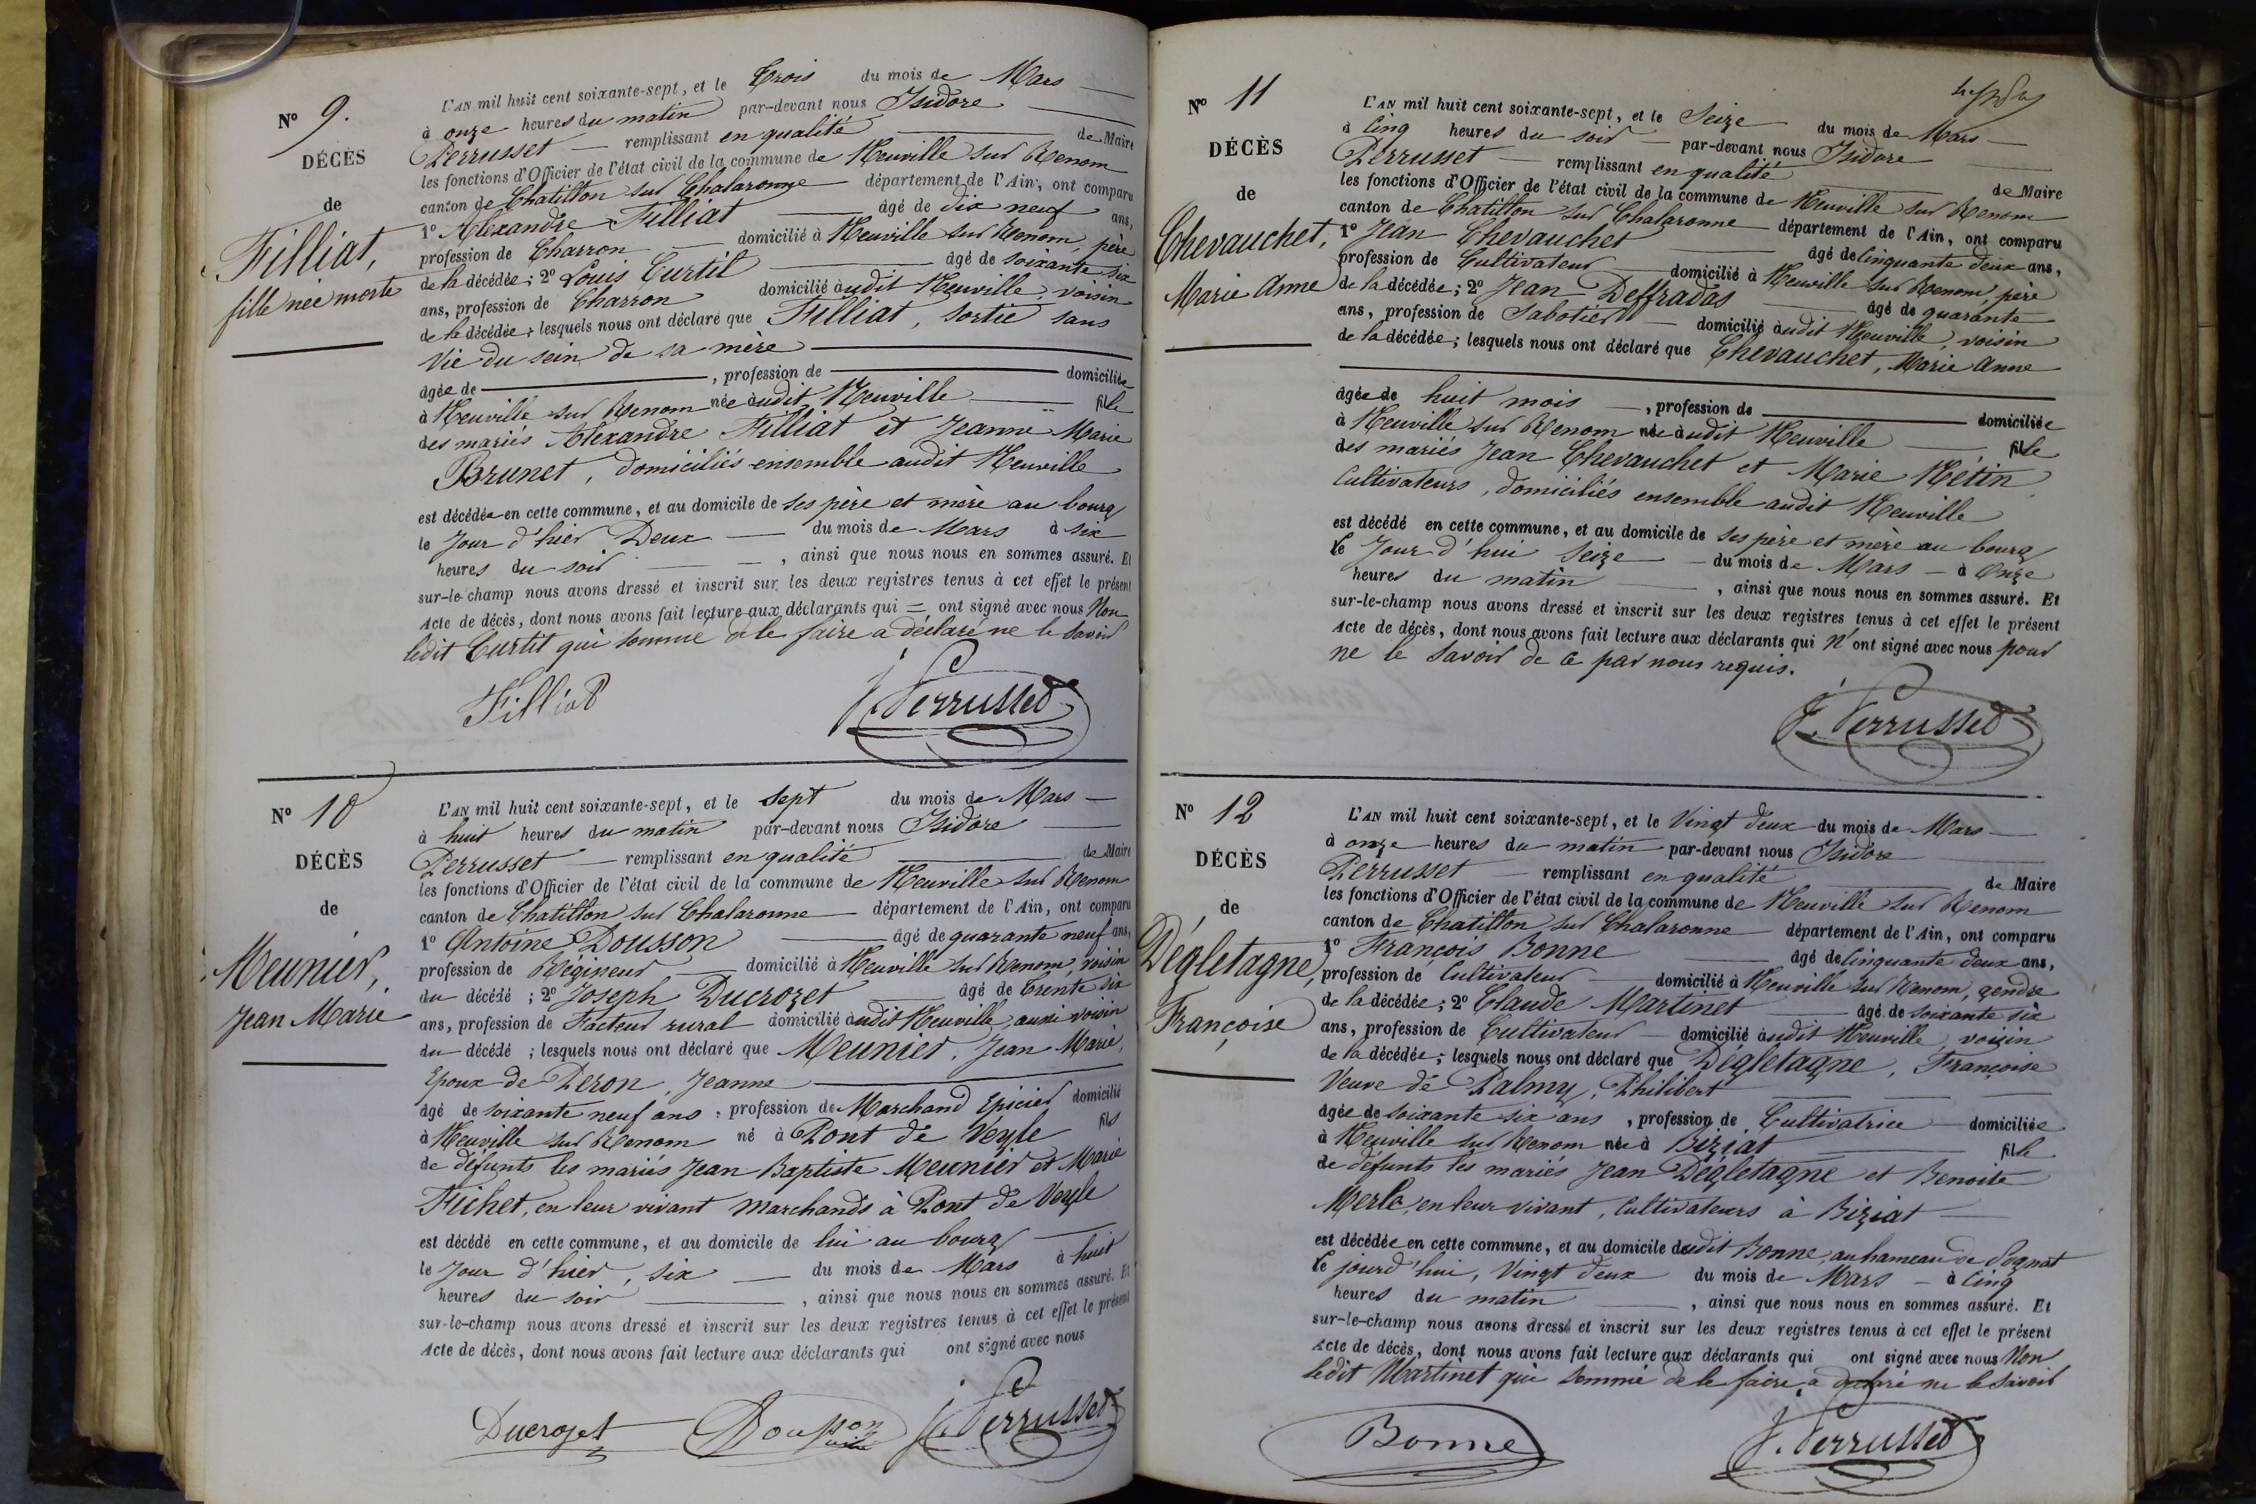 N° 9.
DÉCÈS
de
Filliat,
fille née morte
L'AN mil huit cent soixante-sept, et le Trois du mois de Mars
à onze heures du matin par-devant nous Isidore
Perrusset remplissant en qualité de Maire
les fonctions d'Officier de l'état civil de la commune de Neuville sur Renom
canton de Chatillon sur Chalaronne département de l'Ain, ont comparu
1° Alexandre Filliat âgé de dix neuf ans,
profession de Charron domicilié à Neuville sur Renom, père
de la décédée; 2° Louis Curtil âgé de soixante six
ans, profession de Charron domicilié audit Neuville, voisin
de la décédée; lesquels nous ont déclaré que Filliat, sortie sans
Vie du sein de sa mère
âgée de , profession de domiciliée
à Neuville sur Renom née audit Neuville fille
des mariés Alexandre Filliat et Jeanne Marie
Brunet, domiciliés ensemble audit Neuville
est décédée en cette commune, et au domicile de ses père et mère au bourg
le Jour d'hier Deux du mois de Mars à six
heures du soir , ainsi que nous nous en sommes assuré. Et
sur-le-champ nous avons dressé et inscrit sur les deux registres tenus à cet effet le présent
Acte de décès, dont nous avons fait lecture aux déclarants qui = ont signé avec nous Non
ledit Curtil qui sommé de le faire a déclaré ne le savoir
Filliat J. Perrusset
N° 10
DÉCÈS
de
Meunier,
Jean Marie
L'AN mil huit cent soixante-sept, et le Sept du mois de Mars
à huit heures du matin par-devant nous Isidore
Perrusset remplissant en qualité de Maire
les fonctions d'Officier de l'état civil de la commune de Neuville sur Renom
canton de Chatillon sur Chalaronne département de l'Ain, ont comparu
1° Antoine Dousson âgé de quarante neuf ans,
profession de Régisseur domicilié à Neuville sur Renom, voisin
du décédé; 2° Joseph Ducrozet âgé de Trente six
ans, profession de Facteur rural domicilié audit Neuville, aussi voisin
du décédé; lesquels nous ont déclaré que Meunier, Jean Marie,
Epoux de Peron, Jeanne
âgé de soixante neuf ans, profession de Marchand Epicier domicilié
à Neuville sur Renom né à Pont de Veyle fils
de défunts les mariés Jean Baptiste Meunier et Marie
Fichet, en leur vivant Marchands à Pont de Veyle
est décédé en cette commune, et au domicile de lui au bourg
le Jour d'hier, six du mois de Mars à huit
heures du soir , ainsi que nous nous en sommes assuré. Et
sur-le-champ nous avons dressé et inscrit sur les deux registres tenus à cet effet le présent
Acte de décès, dont nous avons fait lecture aux déclarants qui ont signé avec nous
Ducrozet Dousson J. Perrusset
N° 11
DÉCÈS
de
Chevauchet,
Marie Anne
L'AN mil huit cent soixante-sept, et le Seize du mois de Mars
à Cinq heures du soir par-devant nous Isidore
Perrusset remplissant en qualité de Maire
les fonctions d'Officier de l'état civil de la commune de Neuville sur Renom
canton de Chatillon sur Chalaronne département de l'Ain, ont comparu
1° Jean Chevauchet âgé de Cinquante deux ans,
profession de Cultivateur domicilié à Neuville sur Renom, père
de la décédée; 2° Jean Deffradas âgé de quarante
ans, profession de Sabotier domicilié audit Neuville, voisin
de la décédée; lesquels nous ont déclaré que Chevauchet, Marie Anne
âgée de huit mois , profession de domiciliée
à Neuville sur Renom née audit Neuville fille
des mariés Jean Chevauchet et Marie Nétin
Cultivateurs, domiciliés ensemble audit Neuville
est décédé en cette commune, et au domicile de ses père et mère au bourg
le Jour d'hui Seize du mois de Mars à Onze
heures du matin , ainsi que nous nous en sommes assuré. Et
sur-le-champ nous avons dressé et inscrit sur les deux registres tenus à cet effet le présent
Acte de décès, dont nous avons fait lecture aux déclarants qui n'ont signé avec nous pour
ne le savoir de ce par nous requis.
J. Perrusset
N° 12
DÉCÈS
de
Dégletagne,
Françoise
L'AN mil huit cent soixante-sept, et le Vingt deux du mois de Mars
à onze heures du matin par-devant nous Isidore
Perrusset remplissant en qualité de Maire
les fonctions d'Officier de l'état civil de la commune de Neuville sur Renom
canton de Chatillon sur Chalaronne département de l'Ain, ont comparu
1° François Bonne âgé de Cinquante deux ans,
profession de Cultivateur domicilié à Neuville sur Renom, gendre
de la décédée; 2° Claude Martinet âgé de soixante six
ans, profession de Cultivateur domicilié audit Neuville, voisin
de la décédée; lesquels nous ont déclaré que Dégletagne, Françoise
Veuve de Palmy, Philibert
âgée de soixante six ans , profession de Cultivatrice domiciliée
à Neuville sur Renom née à Biziat fille
de défunts les mariés Jean Dégletagne et Benoite
Merle, en leur vivant, Cultivateurs à Biziat
est décédée en cette commune, et au domicile dudit Bonne, au hameau de
le jourd'hui, Vingt deux du mois de Mars à Cinq
heures du matin , ainsi que nous nous en sommes assuré. Et
sur-le-champ nous avons dressé et inscrit sur les deux registres tenus à cet effet le présent
Acte de décès, dont nous avons fait lecture aux déclarants qui ont signé avec nous Non
ledit Martinet qui sommé de le faire, a déclaré ne le savoir
Bonne J. Perrusset